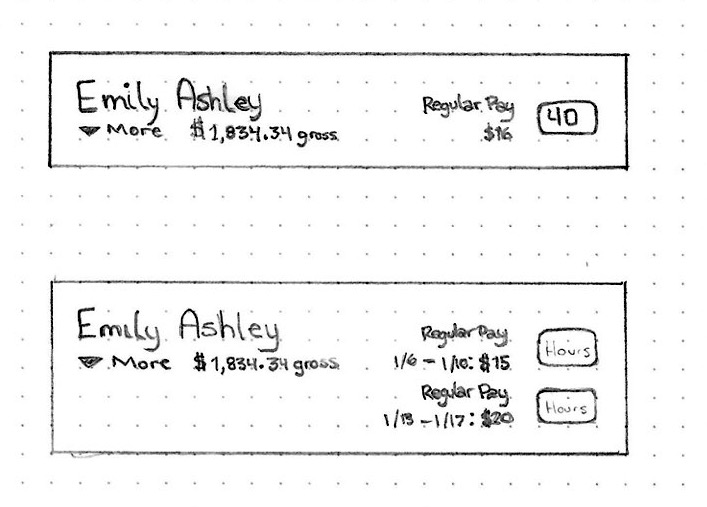 Emily Ashley
▼ More $1,834.34 gross
Regular Pay
$16
40
Emily Ashley
▼ More $1,834.34 gross
Regular Pay
1/6 - 1/10: $15
Hours
Regular Pay
1/13 - 1/17: $20
Hours